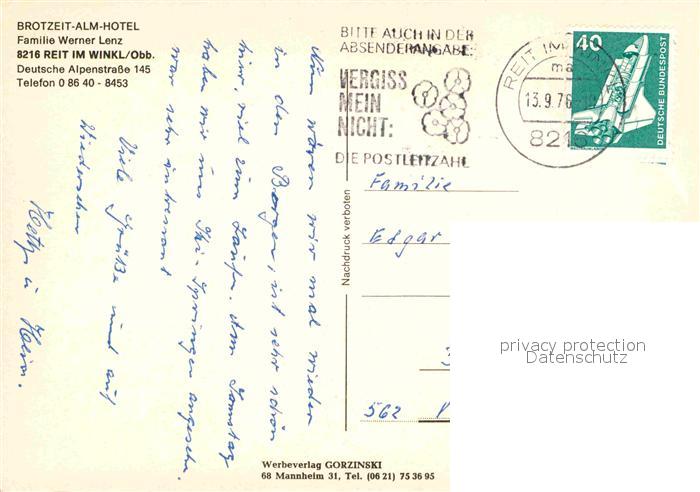 BROTZEIT-ALM-HOTEL
Familie Werner Lenz
8216 REIT IM WINKL/Obb.
Deutsche Alpenstraße 145
Telefon 0 86 40 - 8453
BITTE AUCH IN DER
ABSENDERANGABE:
VERGISS
MEIN
NICHT:
DIE POSTLEITZAHL
REIT IM
ma
13.9.76
8216
40
DEUTSCHE BUNDESPOST
Nun wären wir mal wieder
in den Bergen, ist sehr schön
hier, viel zum Laufen. Am Samstag
haben wir uns Ski-Springen angesehn.
war sehr interessant
Viele Grüße und auf
Wiedersehen
u.
Nachdruck verboten
Familie
Edgar
562
privacy protection
Datenschutz
Werbeverlag GORZINSKI
68 Mannheim 31, Tel. (06 21) 75 36 95